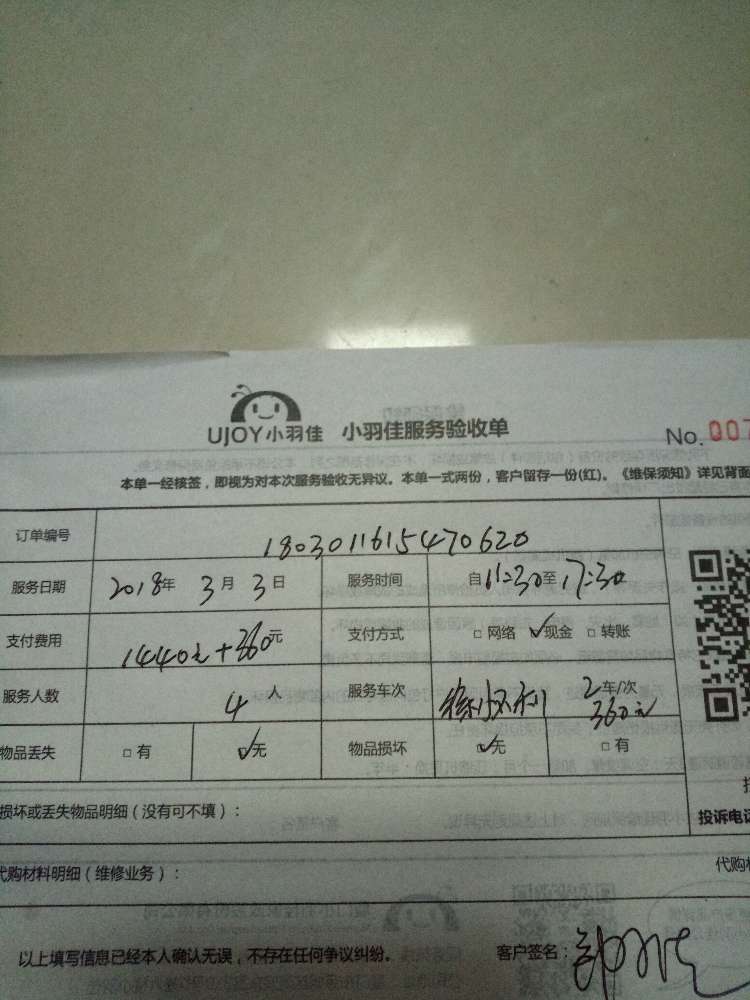 UJOY小羽佳 小羽佳服务验收单
No. 007
本单一经核签，即视为对本次服务验收无异议。本单一式两份，客户留存一份(红)。《维保须知》详见背面
订单编号 180301161547062​0
服务日期 2018年 3月 3日 服务时间 自11:30至17:30
支付费用 1440元+360元 支付方式 □网络 ☑现金 □转账
服务人数 4人 服务车次 2车/次
360元
物品丢失 □有 ☑无 物品损坏 ☑无 □有
损坏或丢失物品明细（没有可不填）：
投诉电话
代购材料明细（维修业务）：
代购材
以上填写信息已经本人确认无误，不存在任何争议纠纷。 客户签名：